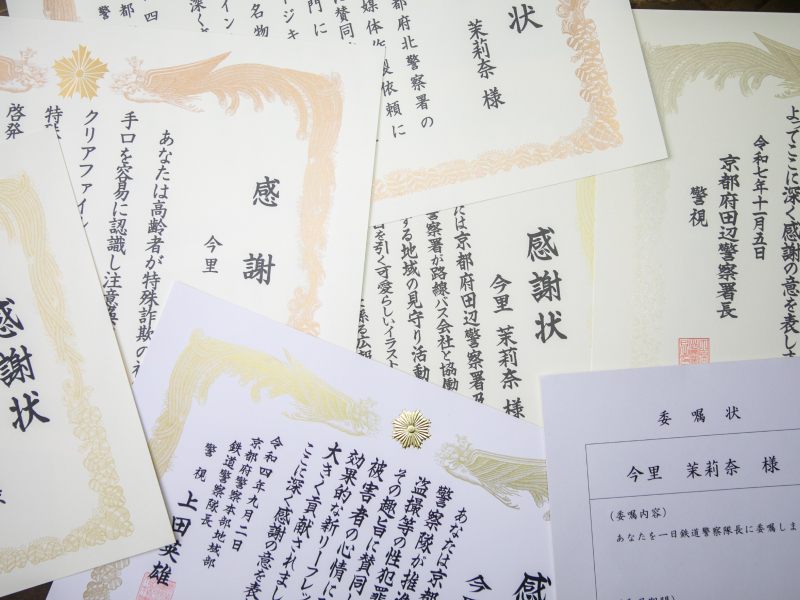 状
茉莉奈 様
都府北警察署の
媒体作製依頼に
感謝
今里
あなたは高齢者が特殊詐欺の
手口を容易に認識し注意
クリアファイル
啓発
よってここに深く感謝の意を表しま
令和七年十一月五日
京都府田辺警察署長
警視
感謝状
今里 茉莉奈 様
は京都府田辺警察署及
警察署が路線バス会社と協働
する地域の見守り活動
を引く可愛らしいイラスト
感謝状
感
今
あなたは京都
警察隊が推進
盗撮等の性犯罪
その趣旨に賛同し
被害者の心情に
効果的な新リーフレッ
大きく貢献されまし
ここに深く感謝の意を表
令和四年九月二日
京都府警察本部地域部
鉄道警察隊長
警視 上田英雄
委嘱状
今里 茉莉奈 様
(委嘱内容)
あなたを一日鉄道警察隊長に委嘱しま